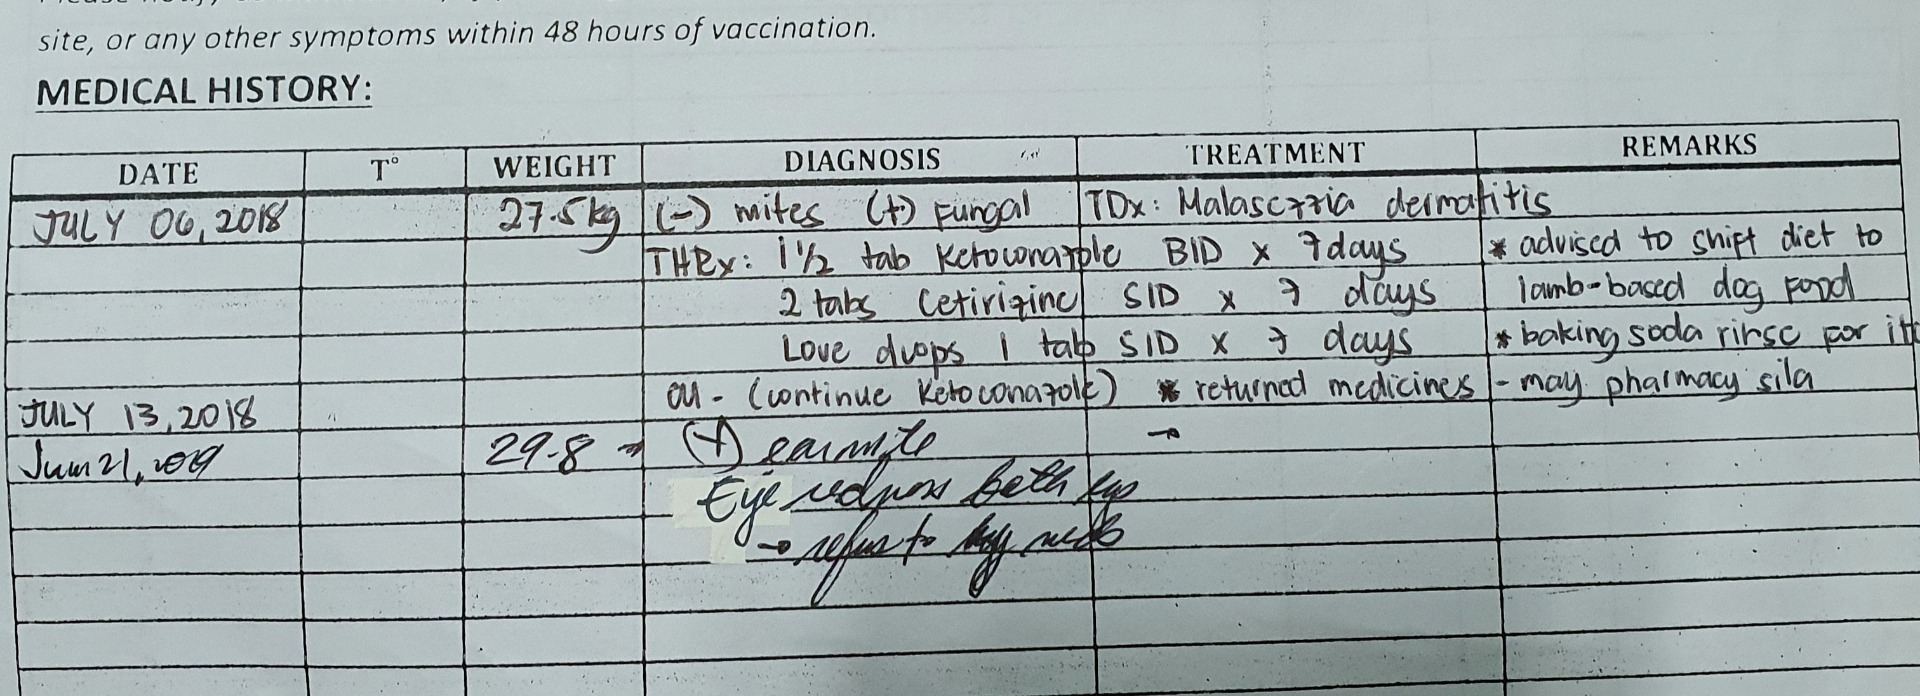 site, or any other symptoms within 48 hours of vaccination.
MEDICAL HISTORY:
DATE T° WEIGHT DIAGNOSIS TREATMENT REMARKS
JULY 06, 2018 27.5kg (-) mites (+) Fungal TDx: Malasezzia dermatitis
THRx: 1 1/2 tab Ketoconazole BID x 7 days * advised to shift diet to
2 tabs Cetirizine SID x 7 days lamb-based dog food
Love drops 1 tab SID x 7 days * baking soda rinse for
JULY 13, 2018 - (continue Ketoconazole) * returned medicines - may pharmacy sila
21, 2019 29.8 → (+) earmite →
Eye redness both
→ refer to